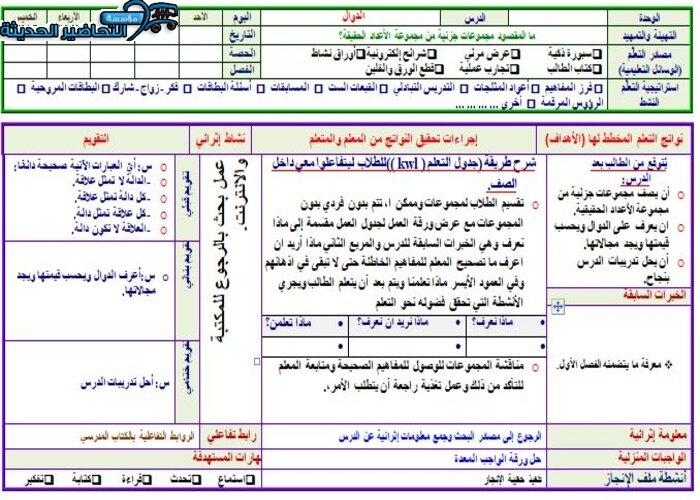 مؤسسة التحاضير الحديثة
الوحدة
الدرس
الدوال
اليوم
الأحد
الأربعاء
الخميس
التهيئة والتمهيد
ما المقصود مجموعات جزئية من مجموعة الأعداد الحقيقة؟
التاريخ
مصادر التعلم (الوسائل التعليمية)
سبورة ذكية
عرض مرئي
شرائح إلكترونية
أوراق نشاط
الحصة
كتاب الطالب
تجارب عملية
قطع الورق والفلين
الفصل
استراتيجية التعلم النشط
فرز المفاهيم
أعواد المثلجات
التدريس التبادلي
القبعات الست
المسابقات
أسئلة البطاقات
فكر - زواج - شارك
البطاقات المروحية
الرؤوس المرقمة
أخرى ... ... ... ...
نواتج التعلم المخطط لها (الأهداف)
إجراءات تحقيق النواتج من المعلم والمتعلم
نشاط إثرائي
التقويم
يتوقع من الطالب بعد الدرس:
أن يصف مجموعات جزئية من مجموعة الأعداد الحقيقية.
ان يعرف على الدوال ويحسب قيمتها ويجد مجالاتها.
أن يحل تدريبات الدرس بنجاح.
الخبرات السابقة
معرفة ما يتضمنه الفصل الأول.
شرح طريقة (جدول التعلم ( kwl ))للطلاب ليتفاعلوا معي داخل الصف.
تقسيم الطلاب لمجموعات وممكن ا، تتم بدون فردي بدون المجموعات مع عرض ورقة العمل لجدول العمل مقسمة إلى ماذا نعرف وهي الخبرات السابقة للدرس والمربع الثاني ماذا أريد ان اعرف ما تصحيح المعلم للمفاهيم الخاطئة حتى لا تبقى في اذهانهم وفي العمود الأيسر ماذا تعلمنا ويتم بعد أن يتعلم الطالب ويجري الأنشطة التي تحقق فضوله نحو التعلم
ماذا نعرف؟
ماذا نريد ان نعرف؟
ماذا تعلمن؟
مناقشة المجموعات للوصول للمفاهيم الصحيحة ومتابعة المعلم للتأكد من ذلك وعمل تغذية راجعة أن يتطلب الأمر.
عمل بحث بالرجوع للمكتبة والانترنت.
تقويم قبلي
س: أي العبارات الآتية صحيحة دائما:
-الدالة لا تمثل علاقة.
-كل دالة تمثل علاقة.
-كل علاقة تمثل دالة.
-العلاقة لا تكون دالة.
تقويم بنائي
س:أعرف الدوال ويحسب قيمتها ويجد مجالاتها.
تقويم ختامي
س: أحل تدريبات الدرس
معلومة إثرائية
الرجوع إلى مصادر البحث وجمع معلومات إثرائية عن الدرس
رابط تفاعلي
الروابط التفاعلية بالكتاب المدرسي
الواجبات المنزلية
حل ورقة الواجب المعدة
هارات المستهدفة
أنشطة ملف الإنجاز
حقيبة الإنجاز
استماع
تحدث
قراءة
كتابة
تفكير